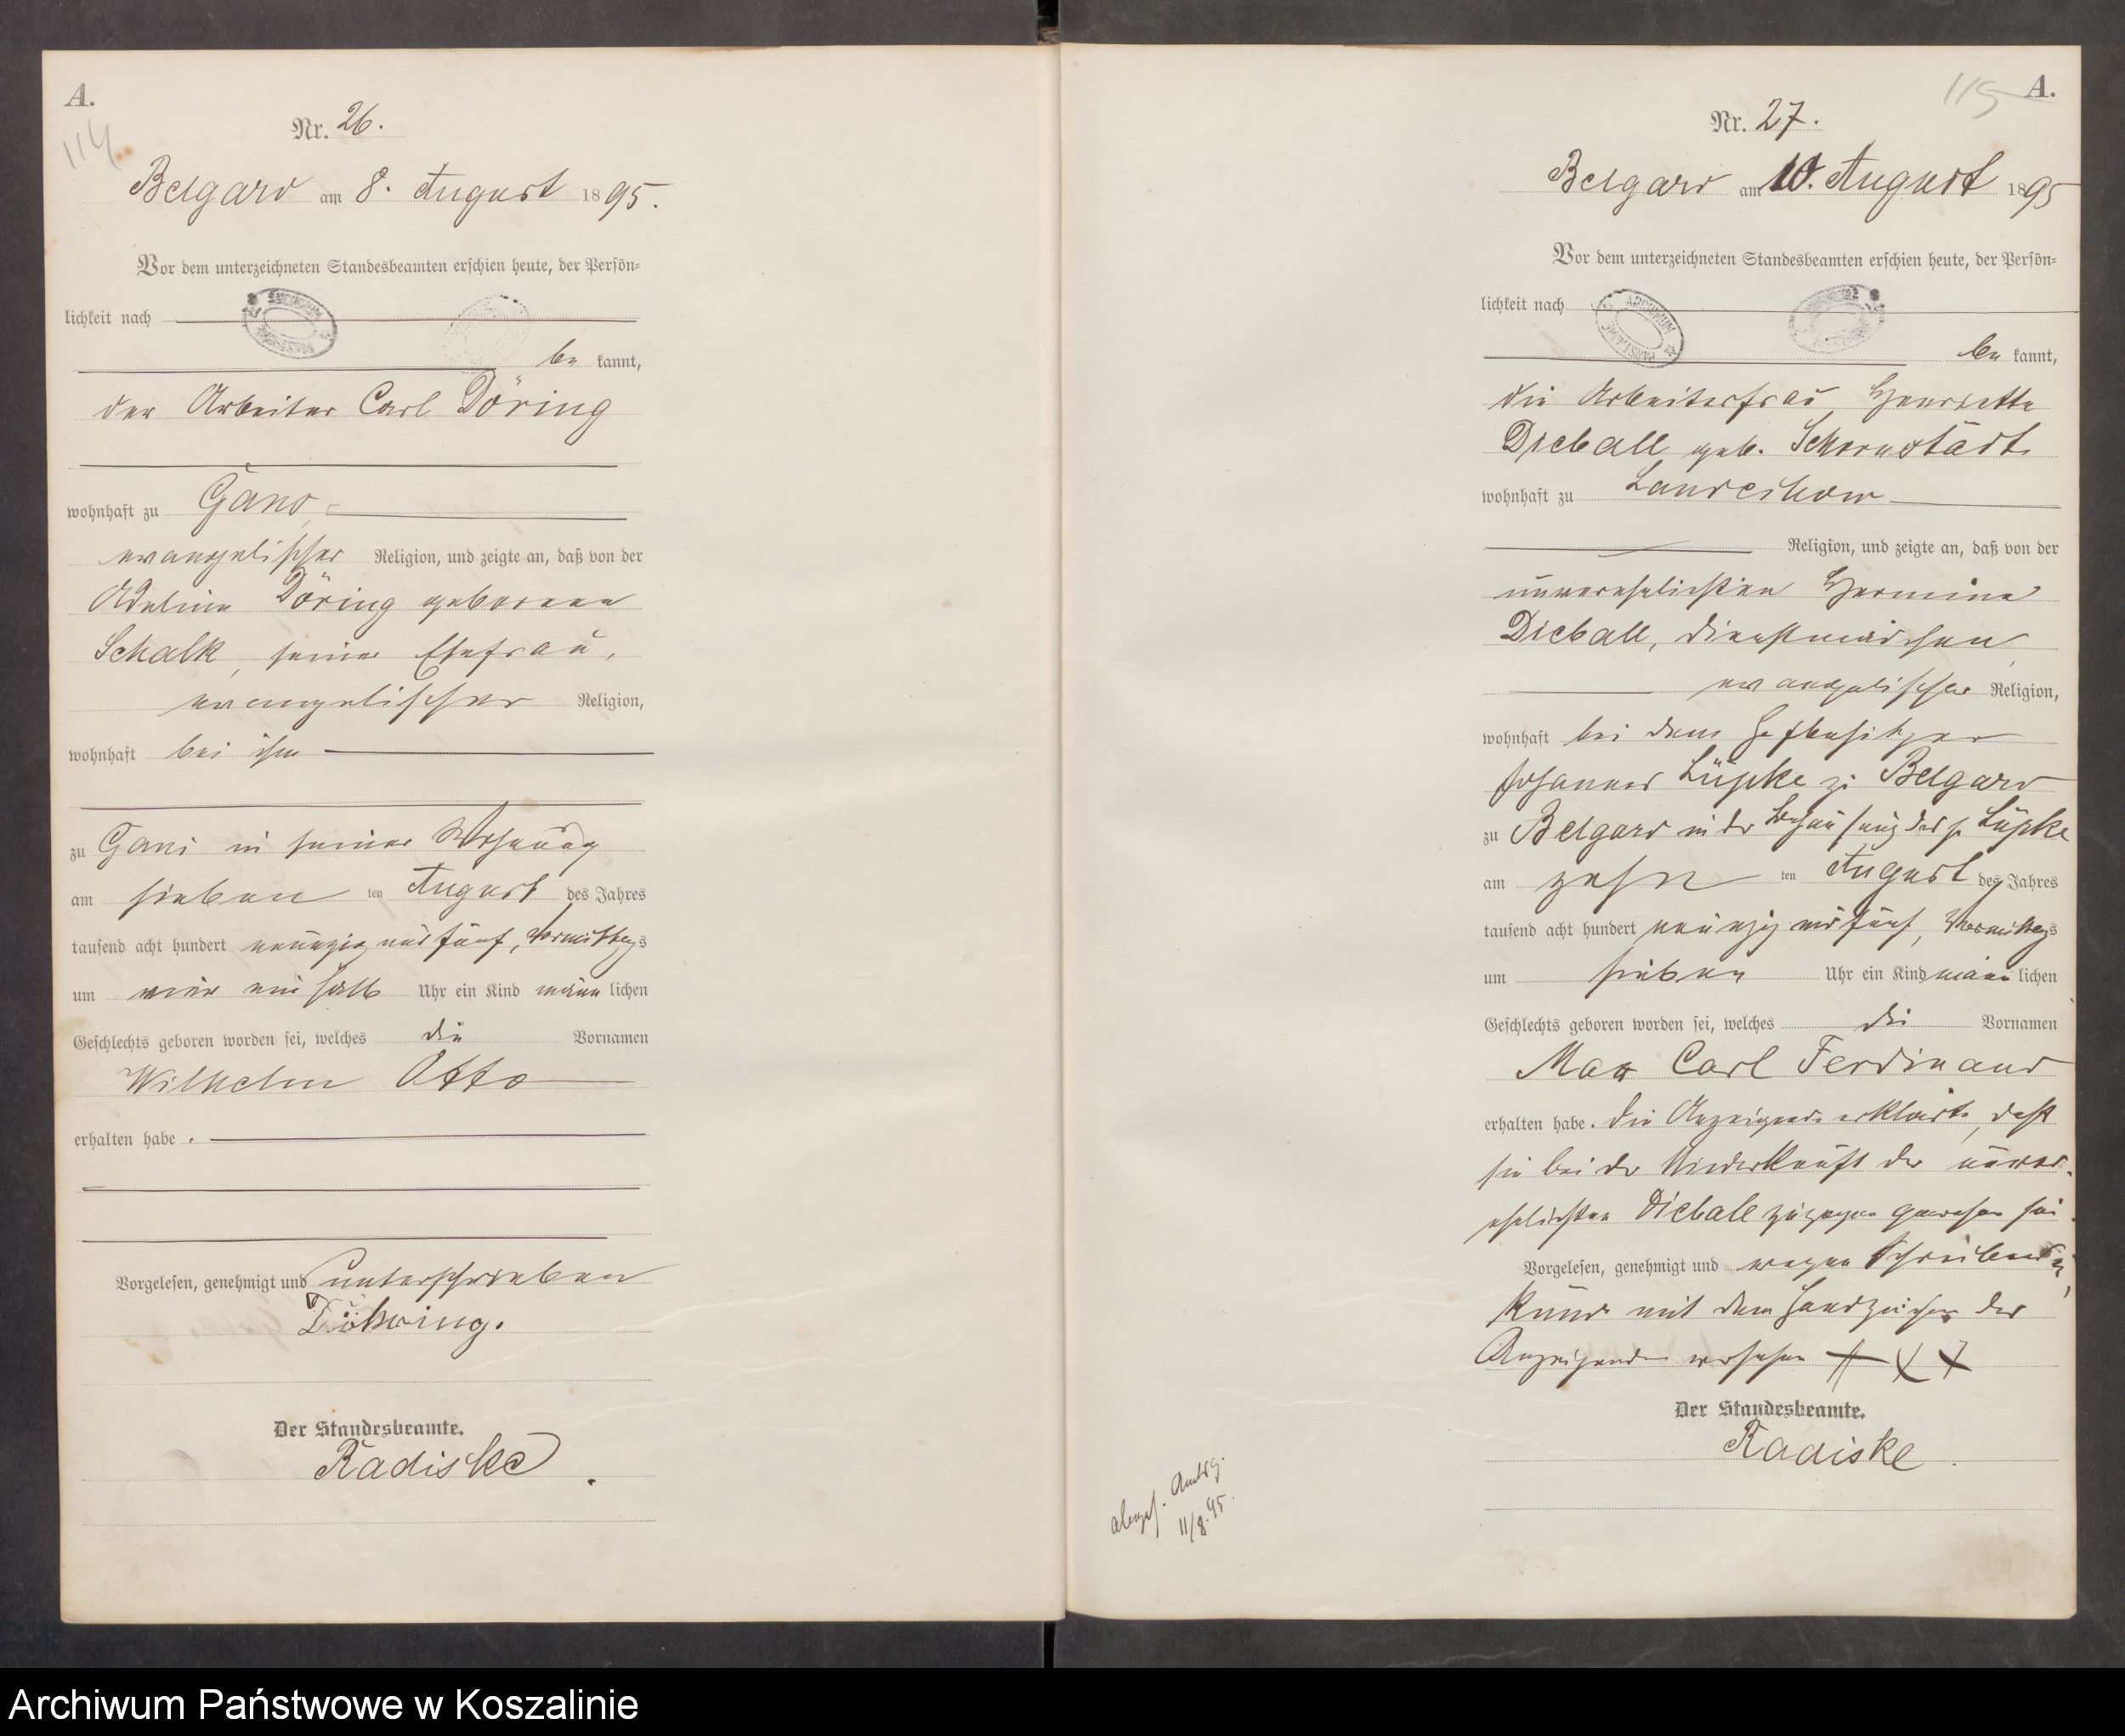 A.
114
Nr. 26.
Belgard am 8. August 1895.
Vor dem unterzeichneten Standesbeamten erschien heute, der Persön=
lichkeit nach
be kannt,
der Arbeiter Carl Döring
wohnhaft zu Gans
evangelischer Religion, und zeigte an, daß von der
Adeline Döring geborene
Schalk, seiner Ehefrau,
evangelischer Religion,
wohnhaft bei ihm
zu Gans in seiner Wohnung
am sieben ten August des Jahres
tausend acht hundert neunzig und fünf, Vormittags
um vier ein halb Uhr ein Kind männ lichen
Geschlechts geboren worden sei, welches die Vornamen
Wilhelm Otto
erhalten habe.
Vorgelesen, genehmigt und unterschrieben
Döhring.
Der Standesbeamte.
Radiske
A.
115
Nr. 27.
Belgard am 10. August 1895
Vor dem unterzeichneten Standesbeamten erschien heute, der Persön=
lichkeit nach
ARCHIWUM
be kannt,
die Arbeiterfrau Henriette
Dieball geb. Schornstädt
wohnhaft zu Landechow
Religion, und zeigte an, daß von der
unverehelichten Hermine
Dieball, Dienstmädchen,
evangelischer Religion,
wohnhaft bei dem Hofbesitzer
Johannes Lüpke zu Belgard
zu Belgard in der Behausung des p. Lüpke
am zehn ten August des Jahres
tausend acht hundert neunzig und fünf, Vormittags
um sieben Uhr ein Kind männ lichen
Geschlechts geboren worden sei, welches die Vornamen
Max Carl Ferdinand
erhalten habe. Die Anzeigende erklärte, daß
sie bei der Niederkunft der unver-
ehelichten Dieball zugegen gewesen sei.
Vorgelesen, genehmigt und wegen Schreibensun
kunde mit dem Handzeichen der
Anzeigenden versehen + + +
Der Standesbeamte.
Radiske
11/8.95.
Archiwum Państwowe w Koszalinie